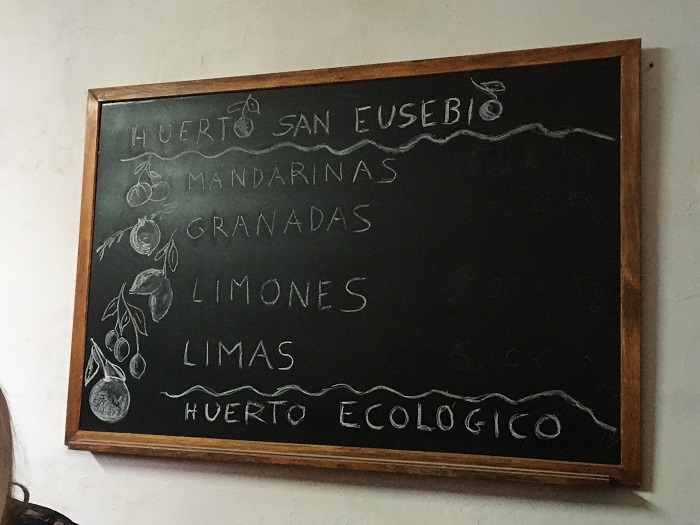 HUERTO SAN EUSEBIO
MANDARINAS
GRANADAS
LIMONES
LIMAS
HUERTO ECOLÓGICO